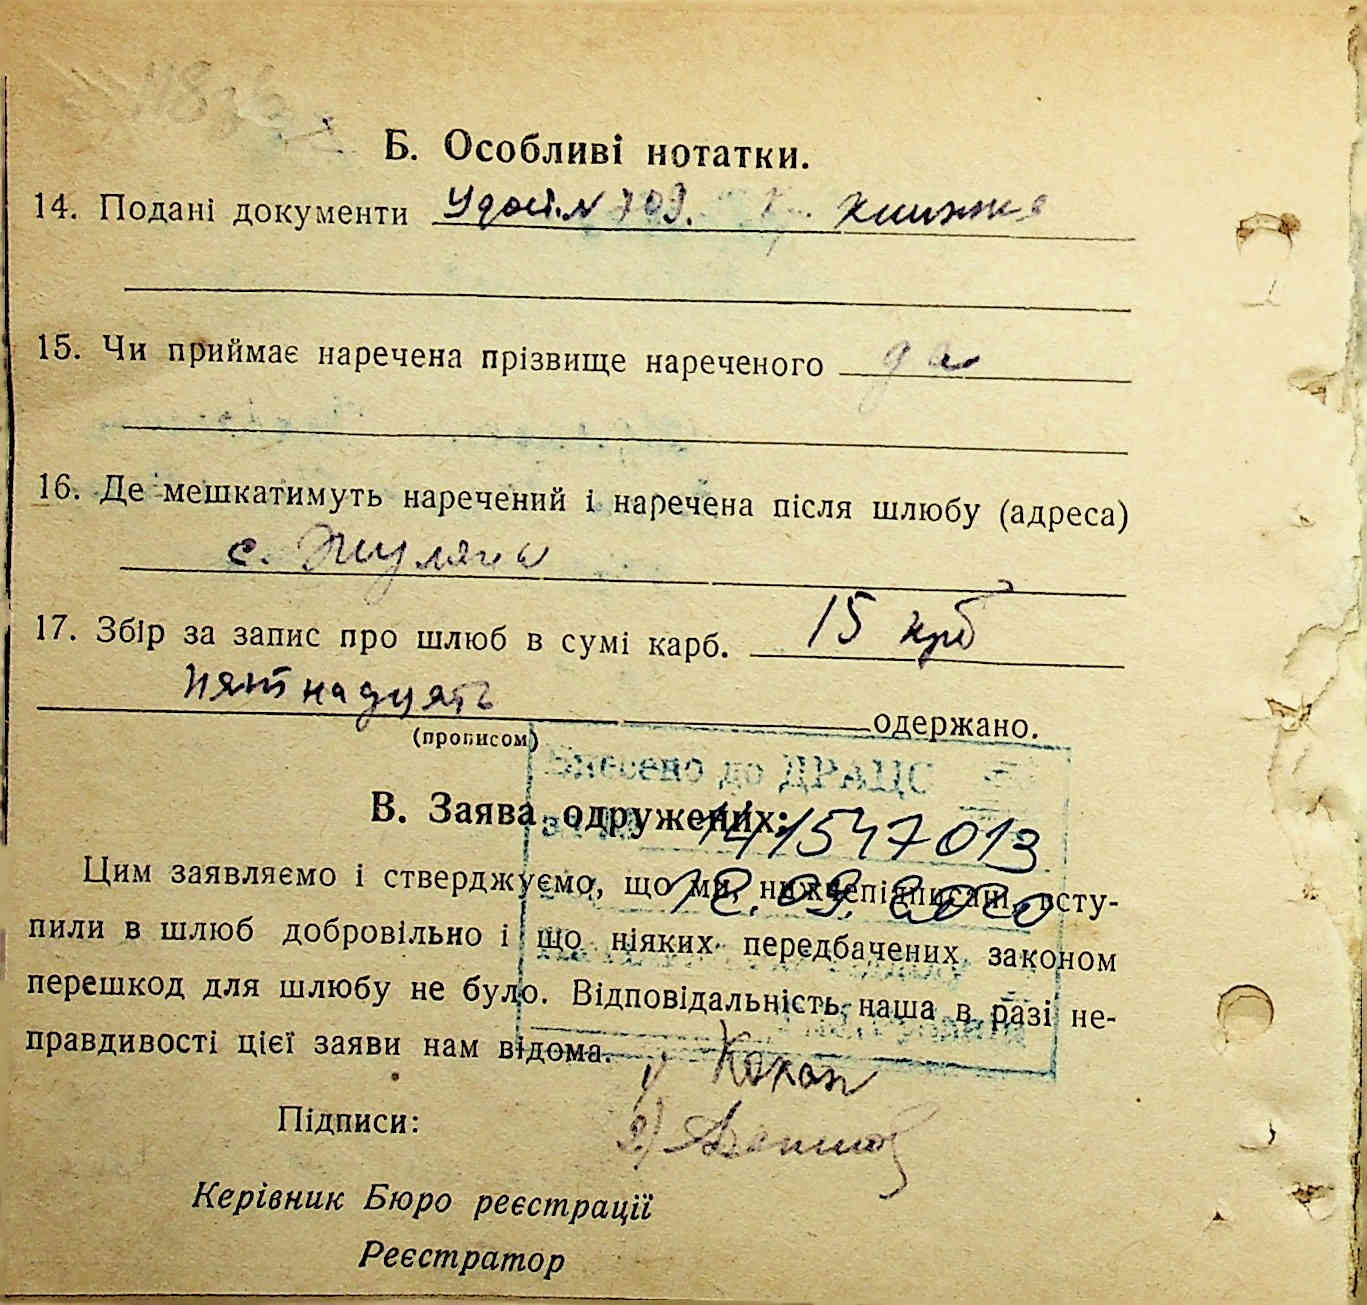 Б. Особливі нотатки.
14. Подані документи Удост. N 709. Кр. книжка
15. Чи приймає наречена прізвище нареченого да
16. Де мешкатимуть наречений і наречена після шлюбу (адреса)
с. Жуляни
17. Збір за запис про шлюб в сумі карб. 15 крб
пятнадцять
одержано.
(прописом)
Внесено до ДРАЦС
В. Заява одружених:
за № 141547013
Цим заявляємо і стверджуємо, що ми, нижчепідписані, всту-
12.09.2020
пили в шлюб добровільно і що ніяких передбачених законом
перешкод для шлюбу не було. Відповідальність наша в разі не-
правдивості цієї заяви нам відома.
1) Кохан
Підписи:
2)
Керівник Бюро реєстрації
Реєстратор